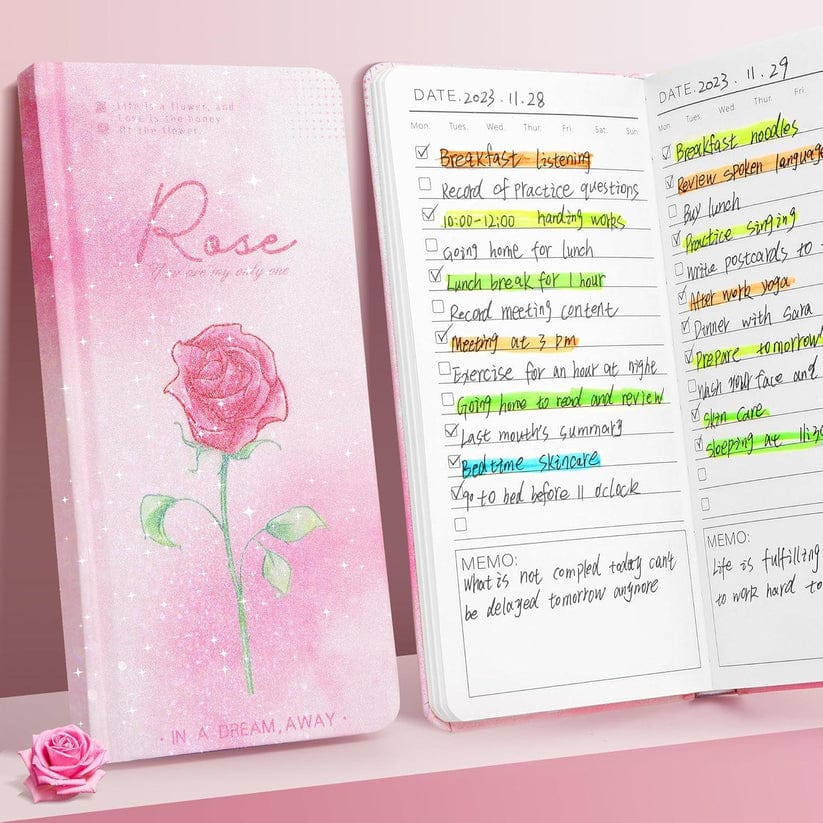 Life is a flower, and
Love is the honey
Of the flower
Rose
You are my only one
· IN A DREAM, AWAY ·
DATE. 2023 . 11. 28
Mon. Tues. Wed. Thur. Fri. Sat. Sun
Breakfast listening
Record of practice questions
10:00-12:00 harding works
Going home for lunch
Lunch break for 1 hour
Record meeting content
Meeting at 3 pm
Exercise for an hour at night
Going home to read and review
Last mouth's summary
Bedtime skincare
go to bed before 11 o'clock
MEMO:
What is not compled today can't
be delayed tomorrow anynore
DATE. 2023 . 11. 29
Mon. Tues. Wed. Thur. Fri.
Breakfast noodles
Review spoken language
Buy lunch
Practice singing
Write postcards to
After work yoga
Dinner with Sara
Prepare tomorrow'
Wash your face and
Skin care
Sleeping at 11:30
MEMO:
Life is fulfilling
to work hard to